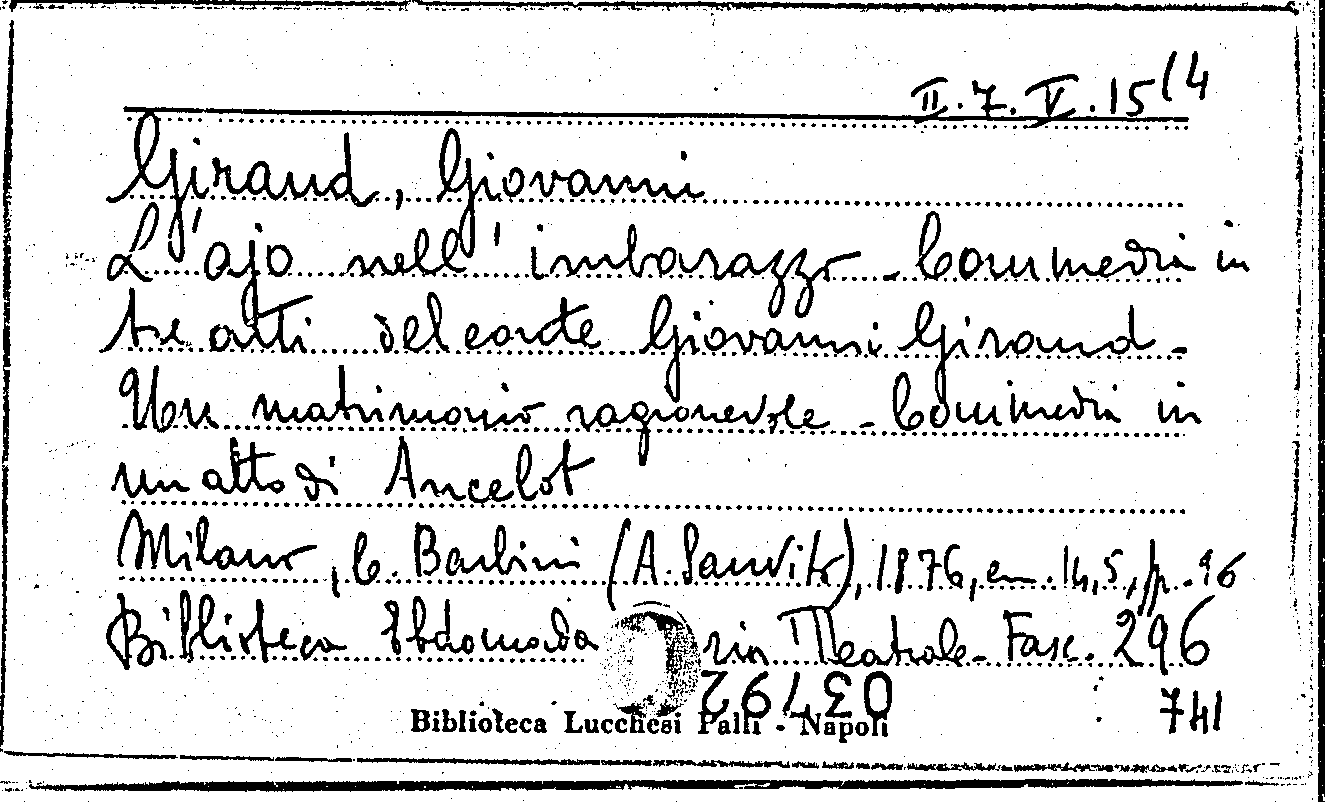 II.7.V.15/4
Giraud, Giovanni
L'ajo nell'imbarazzo - Commedia in
tre atti del conte Giovanni Giraud -
Un matrimonio ragionevole - Commedia in
un atto di Ancelot
Milano, C. Barbini (A. Sanvito), 1876, cm. 14,5, pp. 96
Biblioteca Ebdomadaria Teatrale - Fasc. 296
741
Biblioteca Lucchesi Palli - Napoli